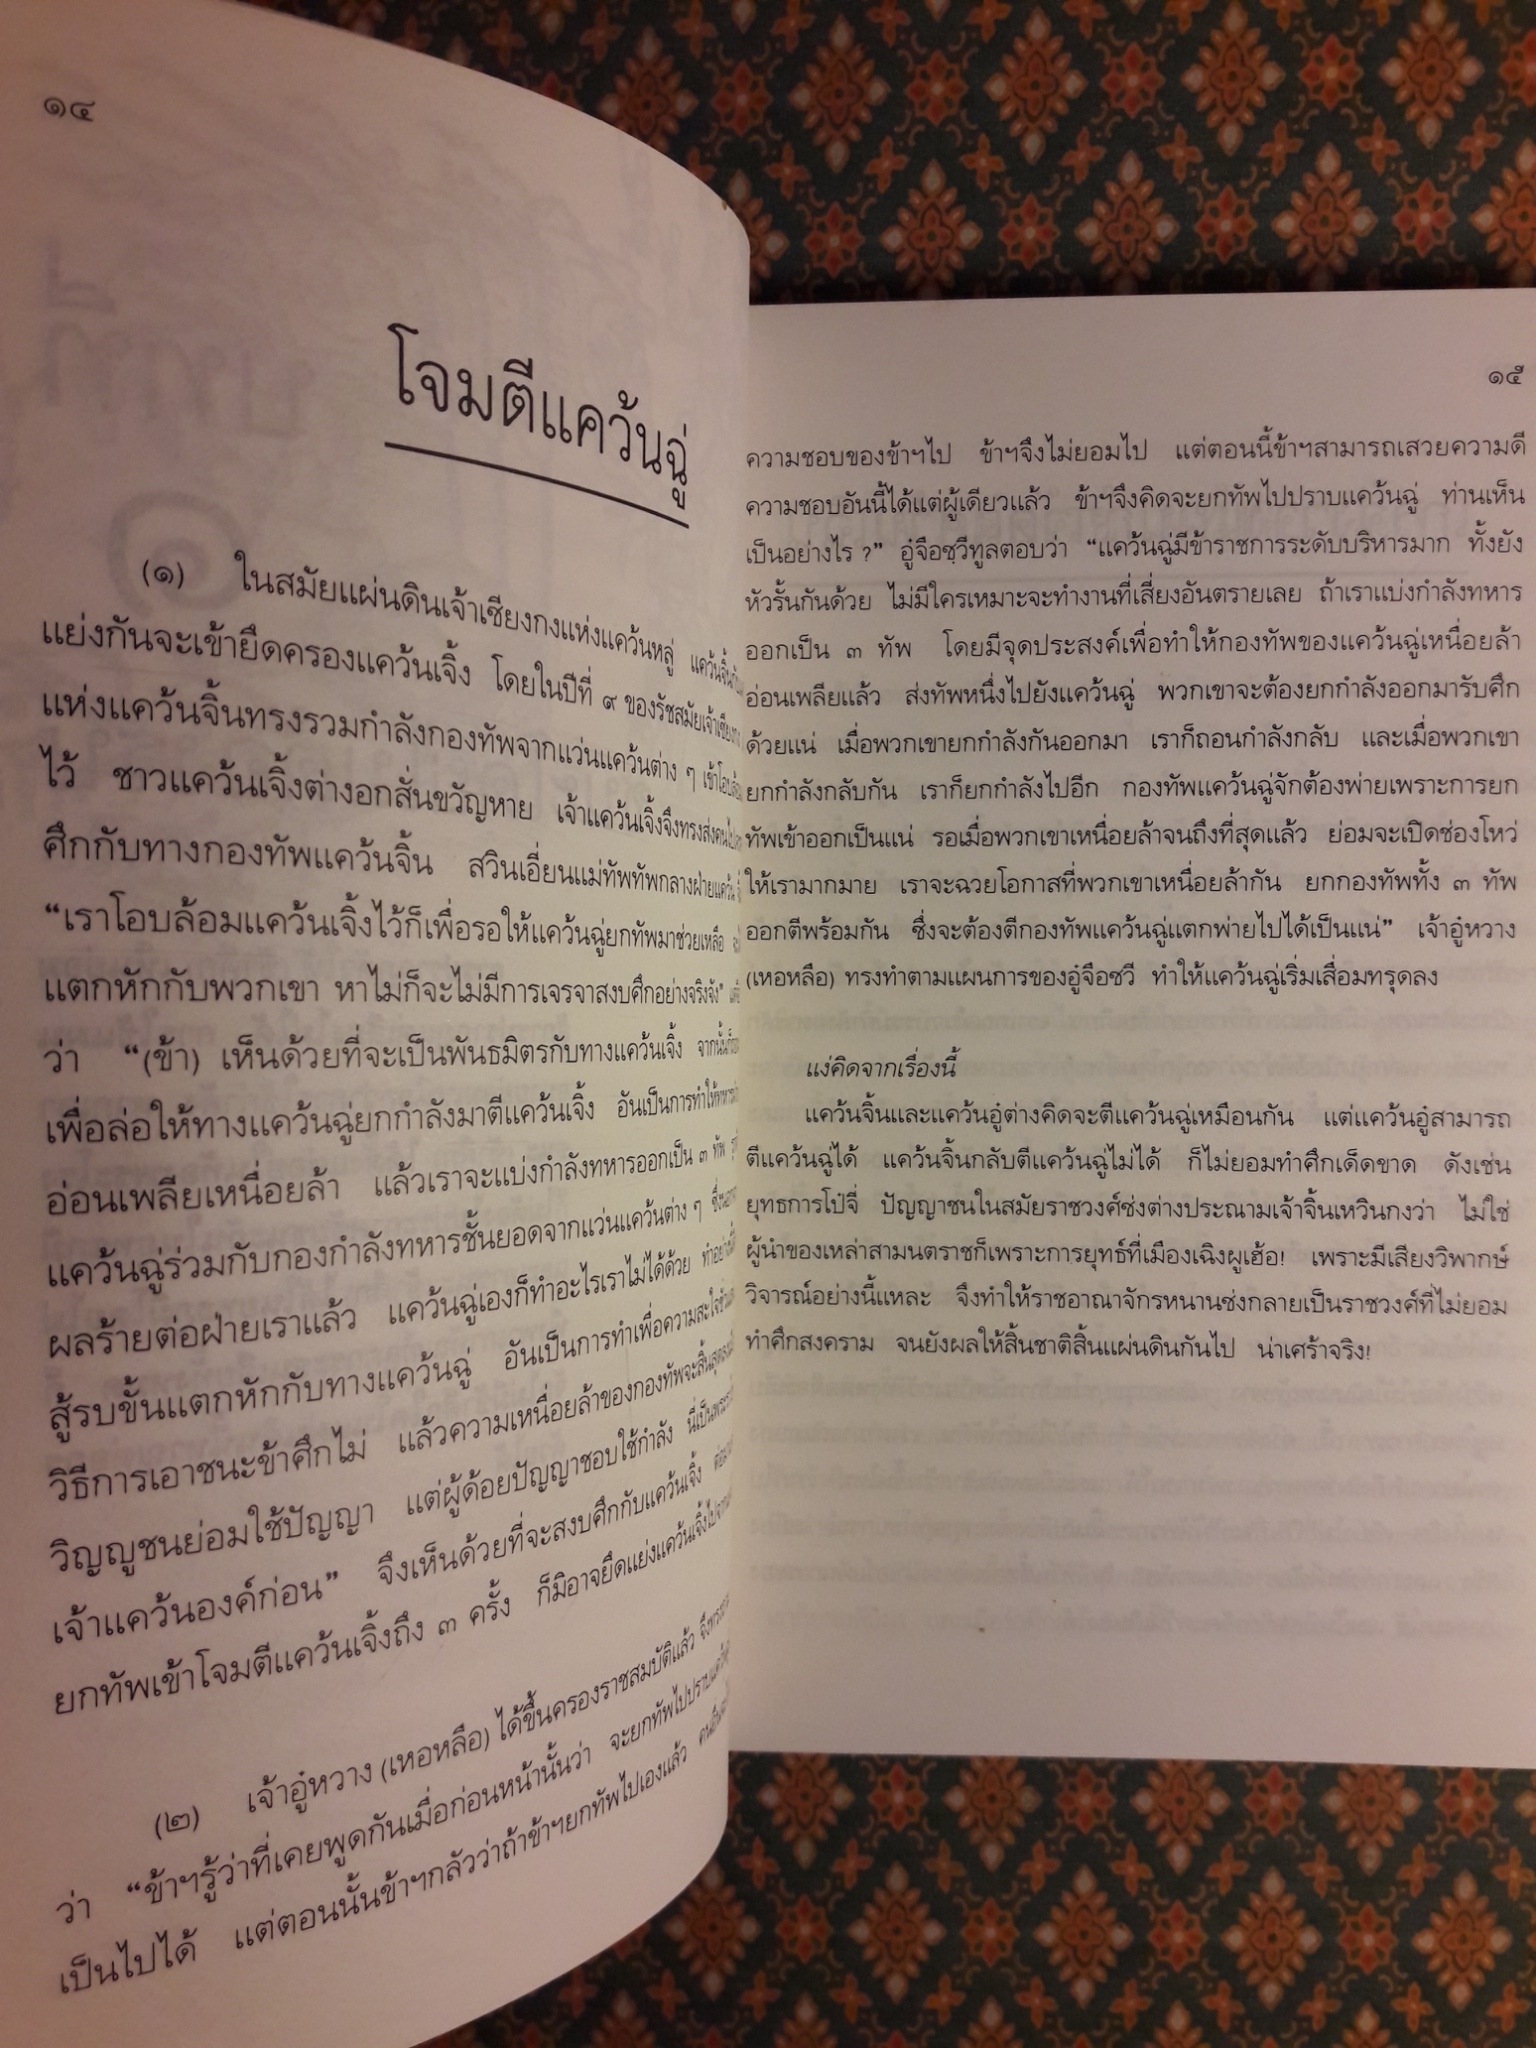 ๑๔
โจมตีแคว้นฉู่
(๑) ในสมัยแผ่นดินเจ้าเซียงกงแห่งแคว้นหลู่
แย่งกันจะเข้ายึดครองแคว้นเจิ้ง โดยในปีที่ ๙ ของรัชสมัยเจ้าเซียงกง
แห่งแคว้นจิ้นทรงรวมกำลังกองทัพจากแว่นแคว้นต่าง ๆ
ไว้ ชาวแคว้นเจิ้งต่างอกสั่นขวัญหาย เจ้าแคว้นเจิ้งจึงทรงส่งคนไป
ศึกกับทางกองทัพแคว้นจิ้น สวินเอี่ยนแม่ทัพทัพกลางฝ่ายแคว้น
“เราโอบล้อมแคว้นเจิ้งไว้ก็เพื่อรอให้แคว้นฉู่ยกทัพมาช่วยเหลือ
แตกหักกับพวกเขา หาไม่ก็จะไม่มีการเจรจาสงบศึกอย่างจริงจัง”
ว่า “(ข้า) เห็นด้วยที่จะเป็นพันธมิตรกับทางแคว้นเจิ้ง
เพื่อล่อให้ทางแคว้นฉู่ยกกำลังมาตีแคว้นเจิ้ง อันเป็นการทำให้
อ่อนเพลียเหนื่อยล้า แล้วเราจะแบ่งกำลังทหารออกเป็น ๓ ทัพ
แคว้นฉู่ร่วมกับกองกำลังทหารชั้นยอดจากแว่นแคว้นต่าง ๆ
ผลร้ายต่อฝ่ายเราแล้ว แคว้นฉู่เองก็ทำอะไรเราไม่ได้ด้วย
สู้รบขั้นแตกหักกับทางแคว้นฉู่ อันเป็นการทำเพื่อความสะใจ
วิธีการเอาชนะข้าศึกไม่ แล้วความเหนื่อยล้าของกองทัพจะสิ้นสุด
วิญญูชนย่อมใช้ปัญญา แต่ผู้ด้อยปัญญาชอบใช้กำลัง
เจ้าแคว้นองค์ก่อน” จึงเห็นด้วยที่จะสงบศึกกับแคว้นเจิ้ง
ยกทัพเข้าโจมตีแคว้นเจิ้งถึง ๓ ครั้ง ก็มิอาจยึดแย่งแคว้นเจิ้งไป
(๒) เจ้าอู๋หวาง (เหอหลือ) ได้ขึ้นครองราชสมบัติแล้ว
ว่า “ข้าฯรู้ว่าที่เคยพูดกันเมื่อก่อนหน้านั้นว่า จะยกทัพไปปราบ
เป็นไปได้ แต่ตอนนั้นข้าฯกลัวว่าถ้าข้าฯยกทัพไปเองแล้ว
๑๕
ความชอบของข้าฯไป ข้าฯจึงไม่ยอมไป แต่ตอนนี้ข้าฯสามารถเสวยความดี
ความชอบอันนี้ได้แต่ผู้เดียวแล้ว ข้าฯจึงคิดจะยกทัพไปปราบแคว้นฉู่ ท่านเห็น
เป็นอย่างไร ?” อู๋จือซฺวีทูลตอบว่า “แคว้นฉู่มีข้าราชการระดับบริหารมาก ทั้งยัง
หัวรั้นกันด้วย ไม่มีใครเหมาะจะทำงานที่เสี่ยงอันตรายเลย ถ้าเราแบ่งกำลังทหาร
ออกเป็น ๓ ทัพ โดยมีจุดประสงค์เพื่อทำให้กองทัพของแคว้นฉู่เหนื่อยล้า
อ่อนเพลียแล้ว ส่งทัพหนึ่งไปยังแคว้นฉู่ พวกเขาจะต้องยกกำลังออกมารับศึก
ด้วยแน่ เมื่อพวกเขายกกำลังกันออกมา เราก็ถอนกำลังกลับ และเมื่อพวกเขา
ยกกำลังกลับกัน เราก็ยกกำลังไปอีก กองทัพแคว้นฉู่จักต้องพ่ายเพราะการยก
ทัพเข้าออกเป็นแน่ รอเมื่อพวกเขาเหนื่อยล้าจนถึงที่สุดแล้ว ย่อมจะเปิดช่องโหว่
ให้เรามากมาย เราจะฉวยโอกาสที่พวกเขาเหนื่อยล้ากัน ยกกองทัพทั้ง ๓ ทัพ
ออกตีพร้อมกัน ซึ่งจะต้องตีกองทัพแคว้นฉู่แตกพ่ายไปได้เป็นแน่” เจ้าอู๋หวาง
(เหอหลือ) ทรงทำตามแผนการของอู๋จือซวี ทำให้แคว้นฉู่เริ่มเสื่อมทรุดลง
แง่คิดจากเรื่องนี้
แคว้นจิ้นและแคว้นอู๋ต่างคิดจะตีแคว้นฉู่เหมือนกัน แต่แคว้นอู๋สามารถ
ตีแคว้นฉู่ได้ แคว้นจิ้นกลับตีแคว้นฉู่ไม่ได้ ก็ไม่ยอมทำศึกเด็ดขาด ดังเช่น
ยุทธการโป๋จี่ ปัญญาชนในสมัยราชวงศ์ซ่งต่างประณามเจ้าจิ้นเหวินกงว่า ไม่ใช่
ผู้นำของเหล่าสามนตราชก็เพราะการยุทธ์ที่เมืองเฉิงผูเฮ้อ! เพราะมีเสียงวิพากษ์
วิจารณ์อย่างนี้แหละ จึงทำให้ราชอาณาจักรหนานซ่งกลายเป็นราชวงศ์ที่ไม่ยอม
ทำศึกสงคราม จนยังผลให้สิ้นชาติสิ้นแผ่นดินกันไป น่าเศร้าจริง!